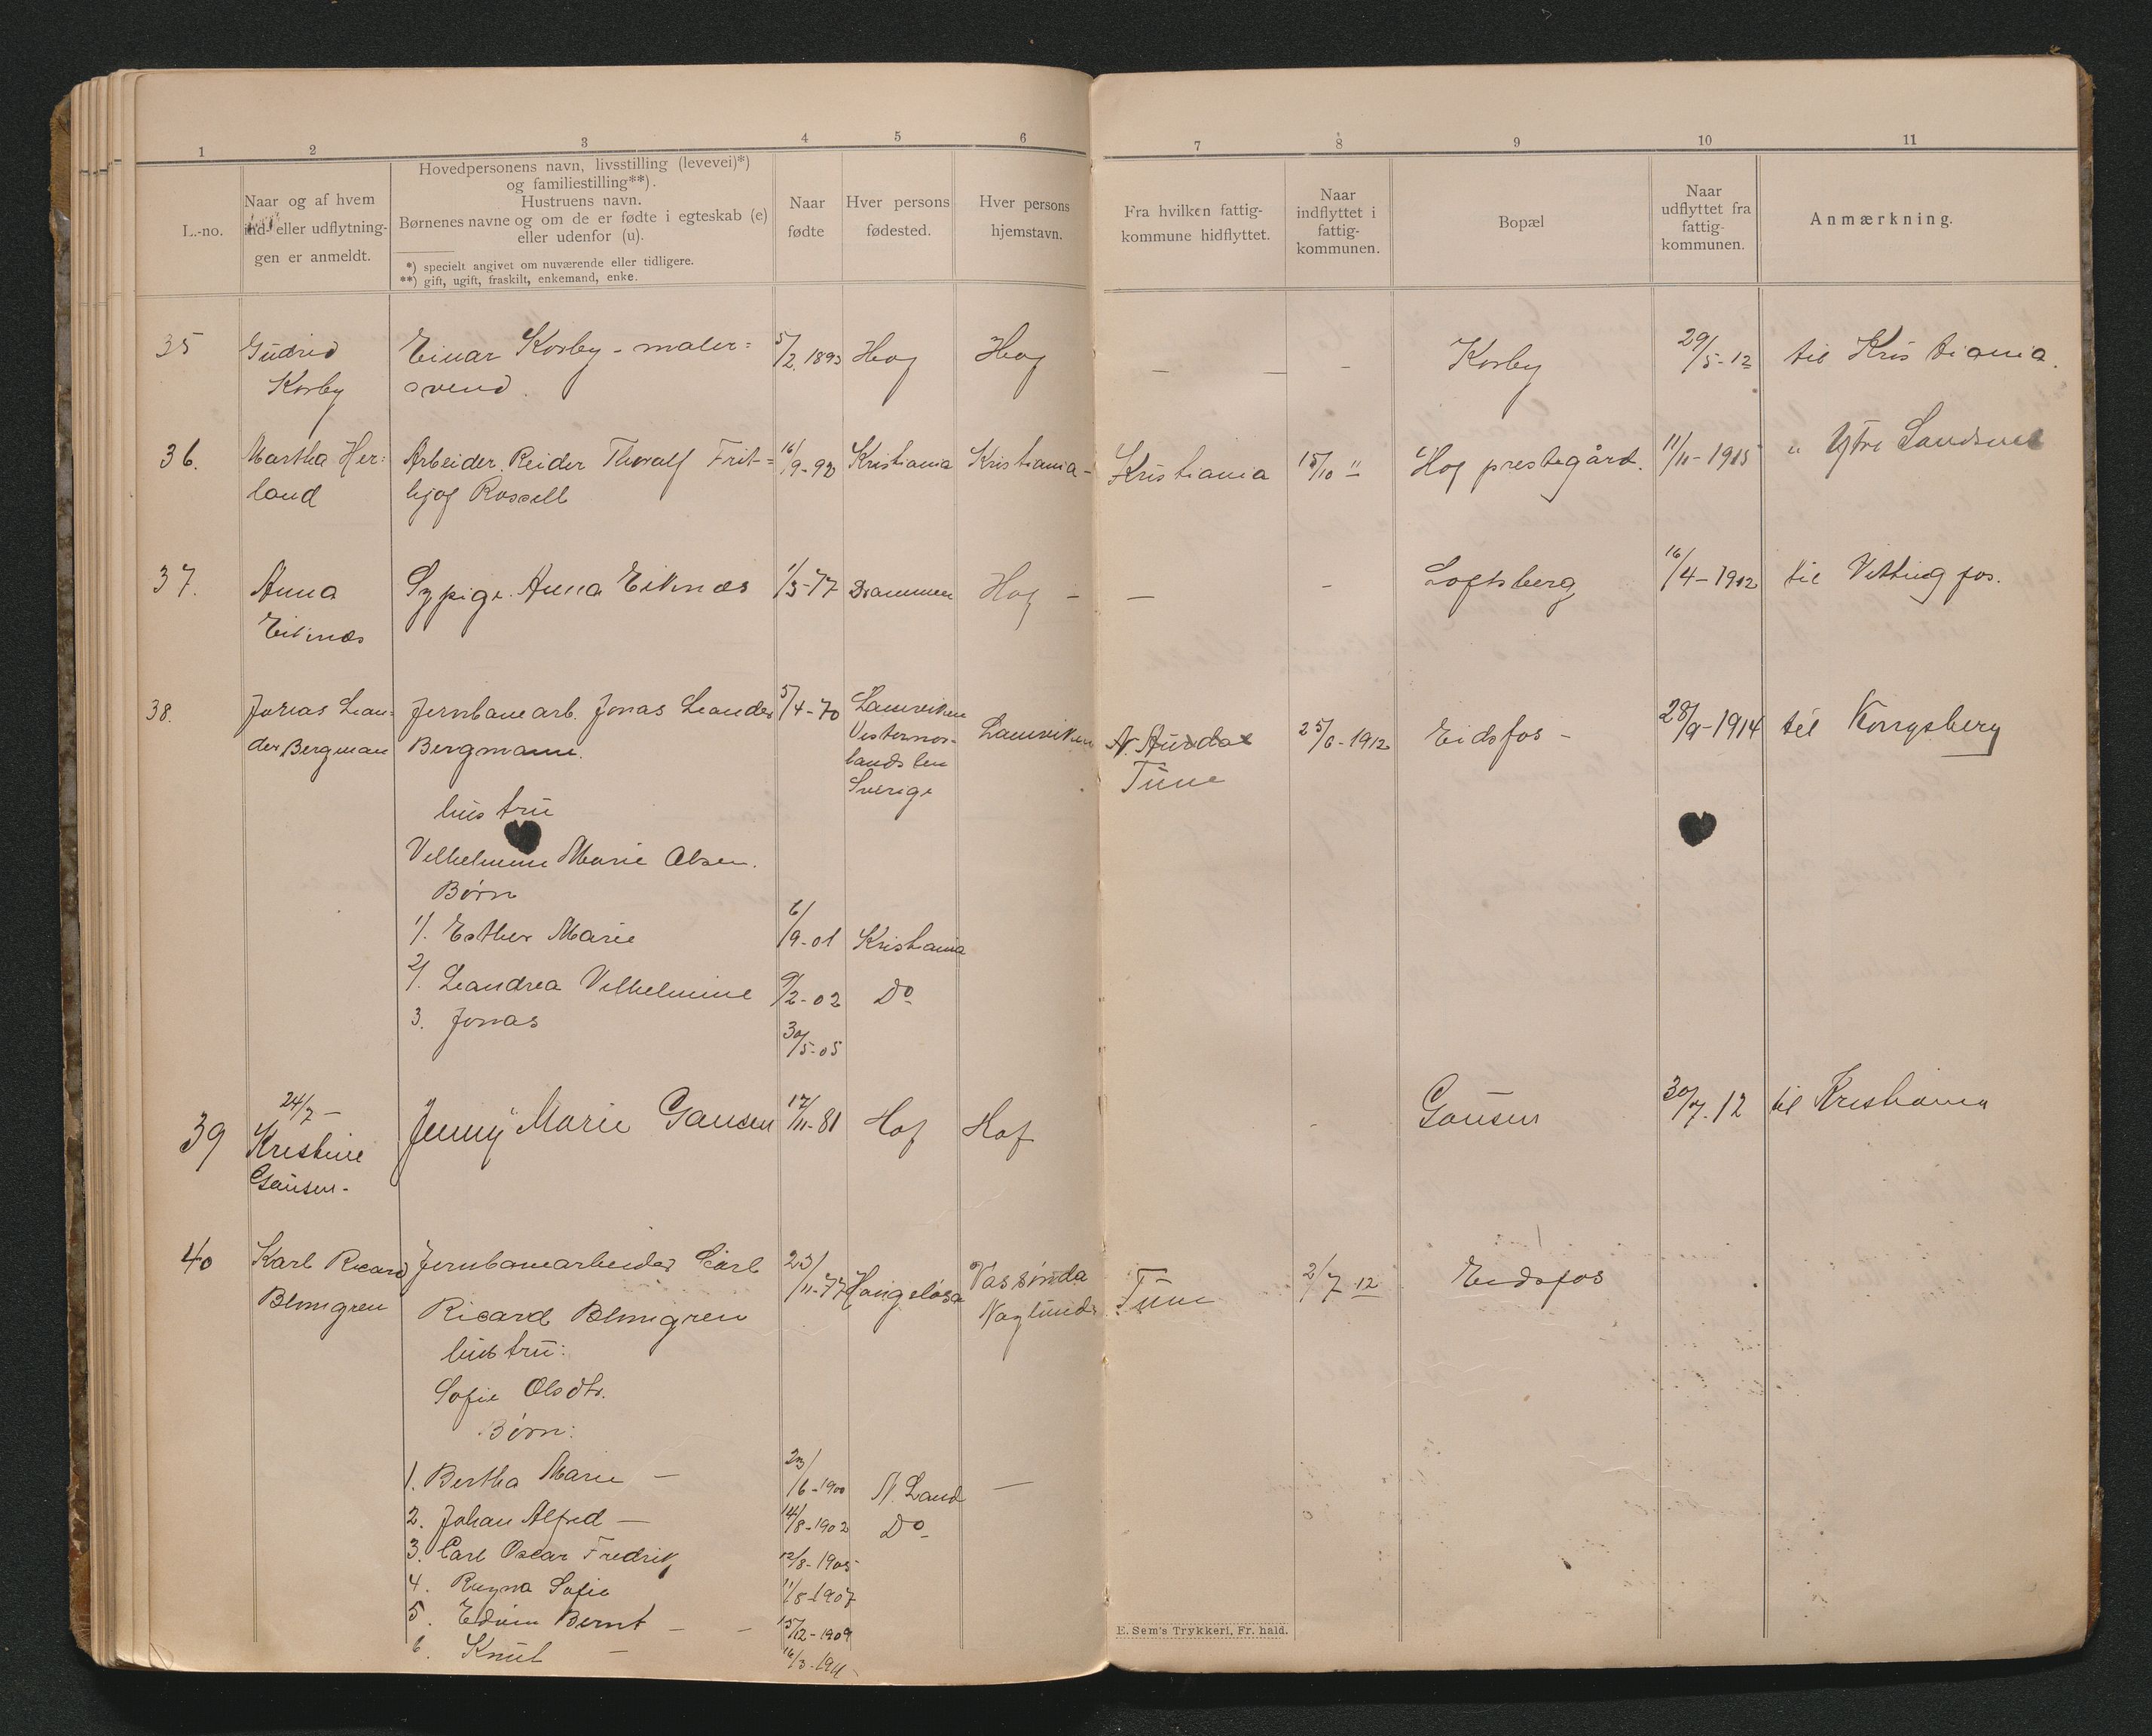 1 2 3 4 5 6 7 8 9 10 11
L.-no.
Naar og af hvem
ind- eller udflytning-
gen er anmeldt.
Hovedpersonens navn, livsstilling (levevei)*)
og familiestilling**).
Hustruens navn.
Børnenes navne og om de er fødte i egteskab (e)
eller udenfor (u).
*) specielt angivet om nuværende eller tidligere.
**) gift, ugift, fraskilt, enkemand, enke.
Naar
fødte
Hver persons
fødested.
Hver persons
hjemstavn.
Fra hvilken fattig-
kommune hidflyttet.
Naar
indflyttet i
fattig-
kommunen.
Bopæl
Naar
udflyttet fra
fattig-
kommunen.
Anmærkning.
35 Gudrid Einar Korby - maler= 5/2. 1893 Hof Hof — — - Korby 29/5-12 til Kristiania.
Korby svend.
36. Martha Her= Arbeider. Reider Thoralf Frit= 16/9-93 Kristiania Kristiania - Kristiania 15/10 " Hof prestegård. 11/11-1915 " Ytre Sandsvær
land hjof Rossell
37. Anna Sypige. Anna Eiknæs 1/3-77 Drammen Hof - — - Loftsberg 16/4-1912 til Vittingfos.
Eiknæs
38. Jonas Lean= Jernbanearb. Jonas Leander 5/4-70 Lanvviken Lanvviken N. Aurdal 25/6-1912 Eidsfos - 28/9-1914 til Kongsberg
der Bergman Bergmann. Vesternor-
landslen Tune
Sverige
hustru
Vilhelmine Marie Olsen.
Børn
1/. Esther Marie 6/9-01 Kristiania
2/. Leandrea Vilhelmine 9/2-02 Do
3. Jonas 30/5-05
24/7 -
39 Kristine Jenny Marie Gausen 17/11-81 Hof Hof - Gausen 30/7.12 til Kristiania
Gausen.
40 Karl Ricard Jernbanearbeider Carl 23/11-77 Hangelösa Vassända Tune 2/7-12 Eidsfos
Blomgren Ricard Blomgren Naglunds
hustru:
Sofie Olsdtr.
Børn:
1. Bertha Marie — 23/6-1900 N. Land —
2. Johan Alfred — 14/8-1902 Do
3. Carl Oscar Fredrik 12/8-1905
4. Ragna Sofie 11/8-1907
5. Edvin Bernt - - 15/12-1909
6. Knut — 16/3-1911-
E. Sem's Trykkeri, Fr. hald.